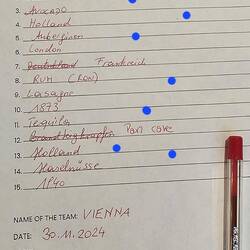 3. AVOCADO
4. Holland
5. Auberginen
6. London
7. Deutschland Frankreich
8. RUM (RON)
9. Lasagne
10. 1873
11. Tequila
12. Pan cave
13. Holland
14. Haselnüsse
15. 1940
NAME OF THE TEAM: VIENNA
DATE: 30.11.2024